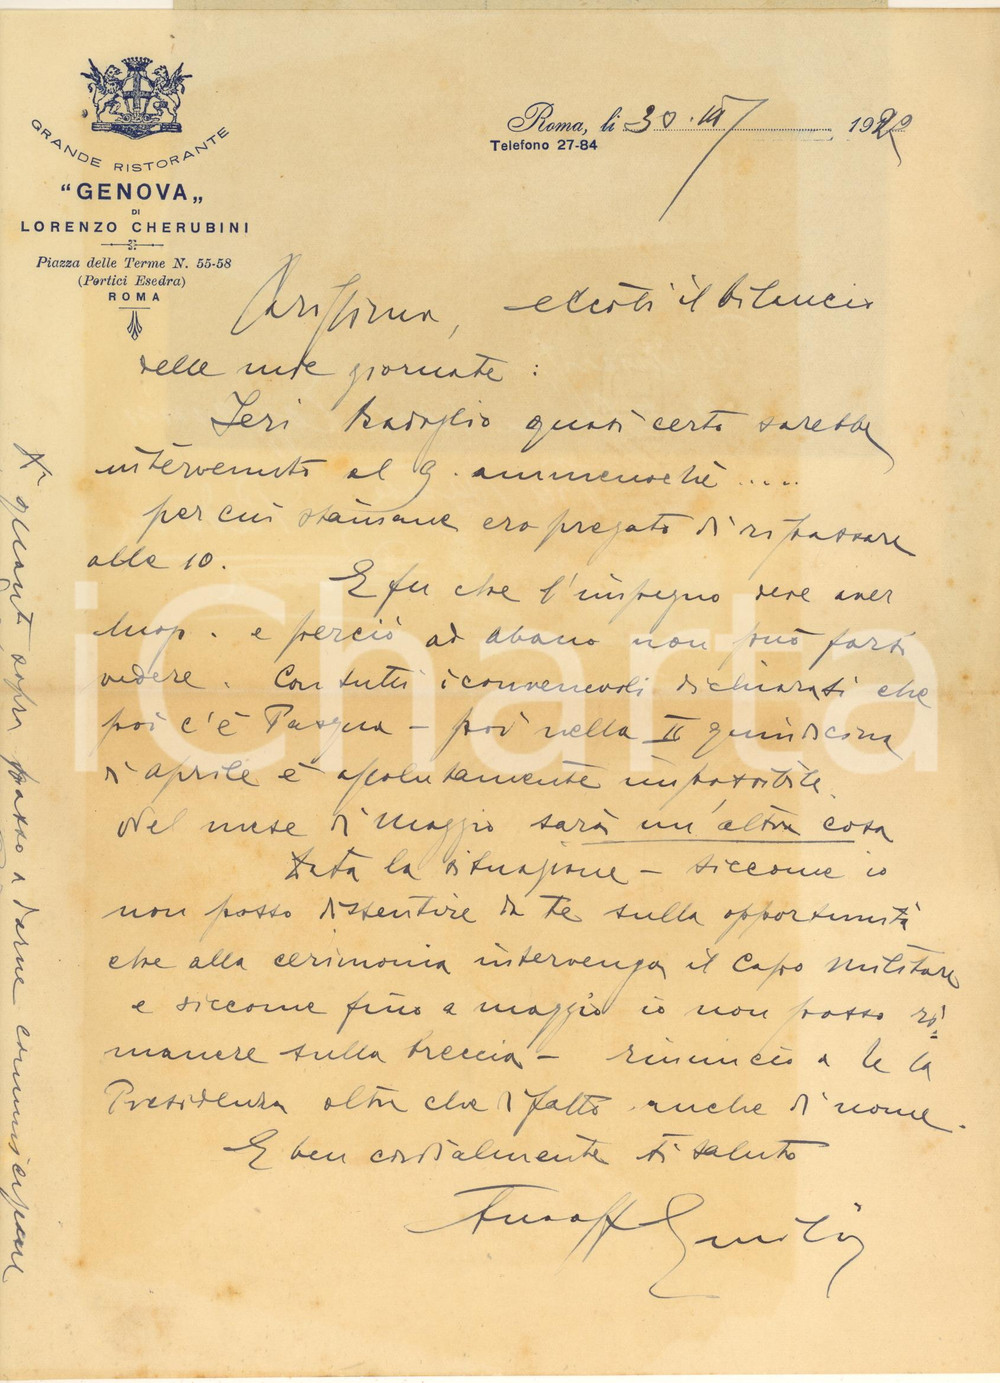 GRANDE RISTORANTE
"GENOVA„
DI
LORENZO CHERUBINI
Piazza delle Terme N. 55-58
(Portici Esedra)
ROMA
Roma, li 30.III 192
Telefono 27-84
Carissimo, eccoti il bilancio
delle mie giornate :
Ieri Badoglio quasi certo sarebbe
intervenuto al G. ammenochè .....
per cui stamane ero pregato di ripassare
alle 10.
E fu che l'impegno deve aver
luogo. e perciò ad Abano non può farsi
vedere. Con tutti i convenevoli dichiarati che
poi c'è Pasqua – poi nella II quindicina
di Aprile è assolutamente impossibile.
Nel mese di Maggio sarà un'altra cosa
Data la situazione – siccome io
non posso dissentire da te sulla opportunità
che alla cerimonia intervenga il Capo Militare
e siccome fino a maggio io non posso ri=
manere sulla breccia – rinuncio a te la
Presidenza oltre che di fatto anche di nome.
E ben cordialmente ti saluto
Emilio
quanti sopra passo a darne comunicazione
iCharta